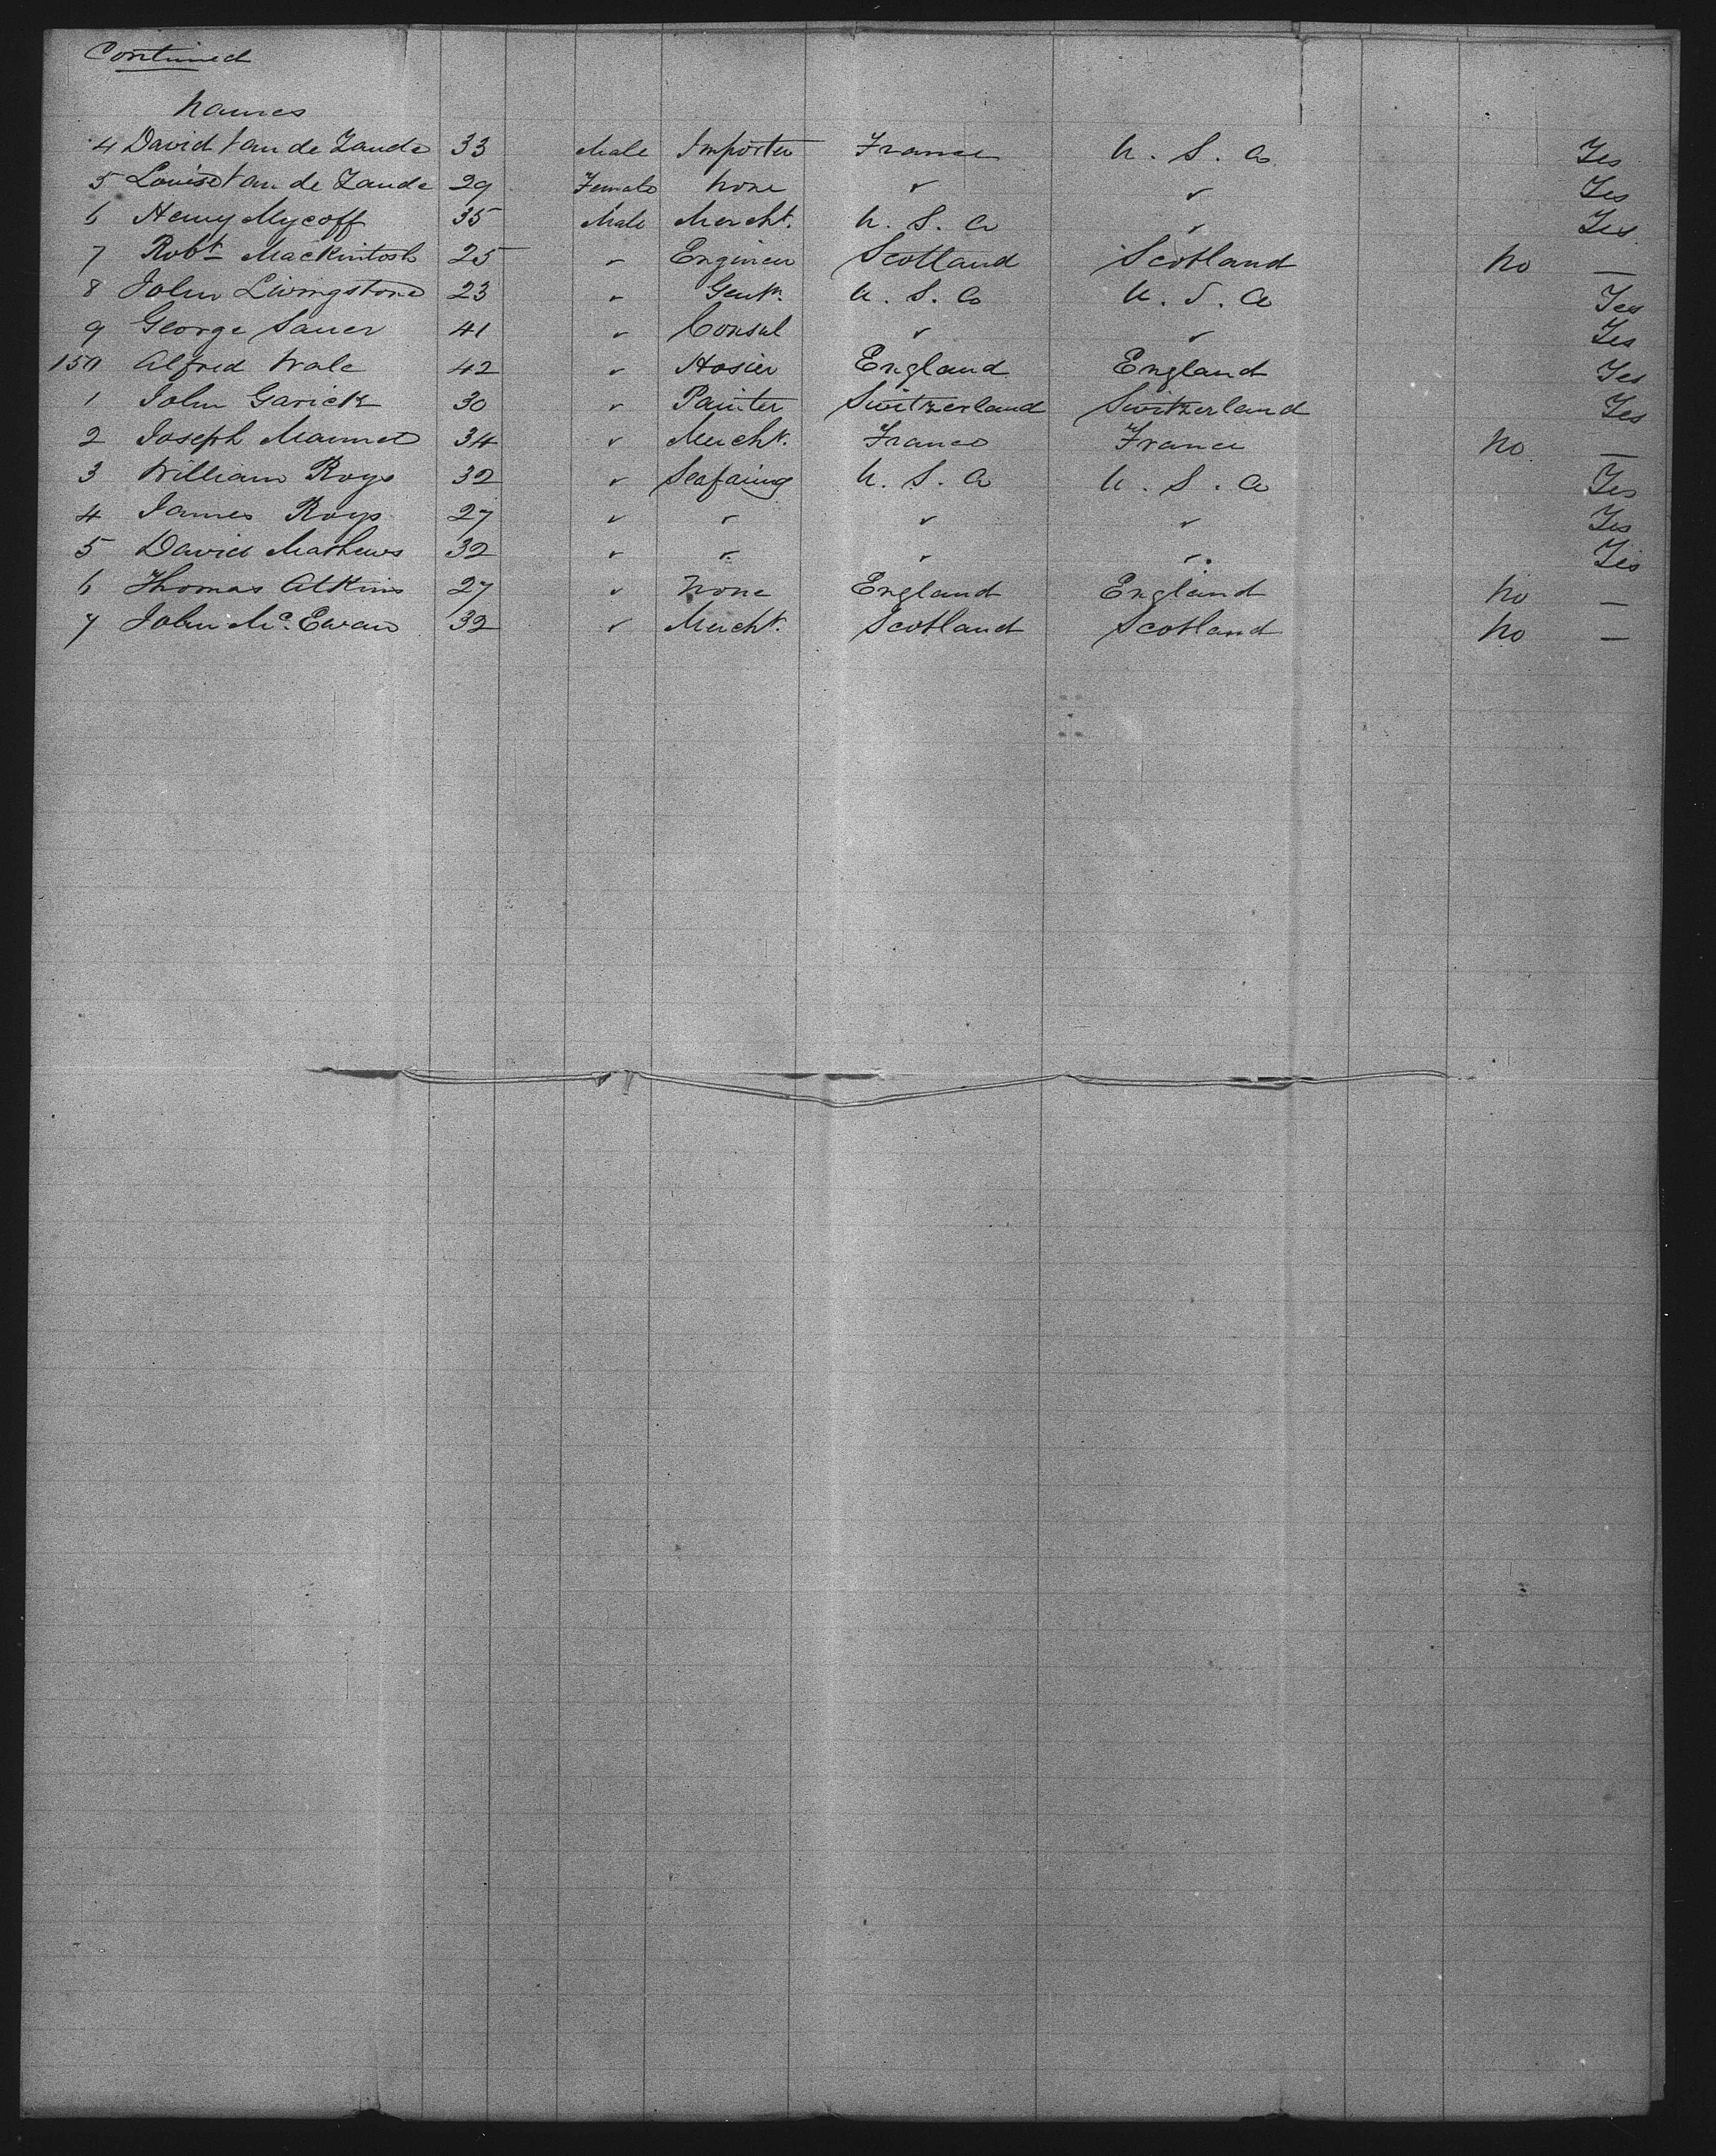 Continued
Names
4 David Van de Zande 33 Male Importer France U. S. A Yes
5 Louise Van de Zande 29 Female None " " Yes
6 Henry Mycoff 35 Male Mercht. U. S. A " Yes
7 Robt Mackintosh 25 " Engineer Scotland Scotland No —
8 John Livingstone 23 " Gentn. U. S. A U. S. A Yes
9 George Sauer 41 " Consul " " Yes
150 Alfred Wale 42 " Hosier England England Yes
1 John Garick 30 " Painter Switzerland Switzerland Yes
2 Joseph 34 " Mercht. France France No —
3 William Roys 32 " Seafaring U. S. A U. S. A Yes
4 James Roys 27 " " " " Yes
5 David Mathews 32 " " " " Yes
6 Thomas Atkins 27 " None England England No —
7 John Mc. Ewan 32 " Mercht. Scotland Scotland No —